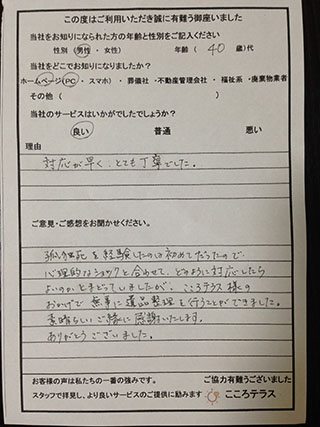 この度はご利用いただき誠に有難う御座いました
当社をお知りになられた方の年齢と性別をご記入ください
性別 (男性 ・ 女性) 年齢 ( 40 歳)代
当社をどこでお知りになりましたか?
ホームページ(PC ・ スマホ) ・ 葬儀社 ・不動産管理会社 ・ 福祉系 ・廃棄物業者
その他 ( )
当社のサービスはいかがでしたでしょうか?
良い 普通 悪い
理由
対応が早く、とても丁寧でした。
ご意見・ご感想をお聞かせください。
孤独死を経験したのは初めてだったので
心理的なショックと合わせて、どのように対応したら
よいのかとまどってしまいましたが、こころテラス様の
おかげで無事に遺品整理を行うことができました。
素晴らしいご縁に感謝いたします。
ありがとうございました。
お客様の声は私たちの一番の強みです。 ご協力有難うございました
スタッフで拝見し、より良いサービスのご提供に励みます こころテラス